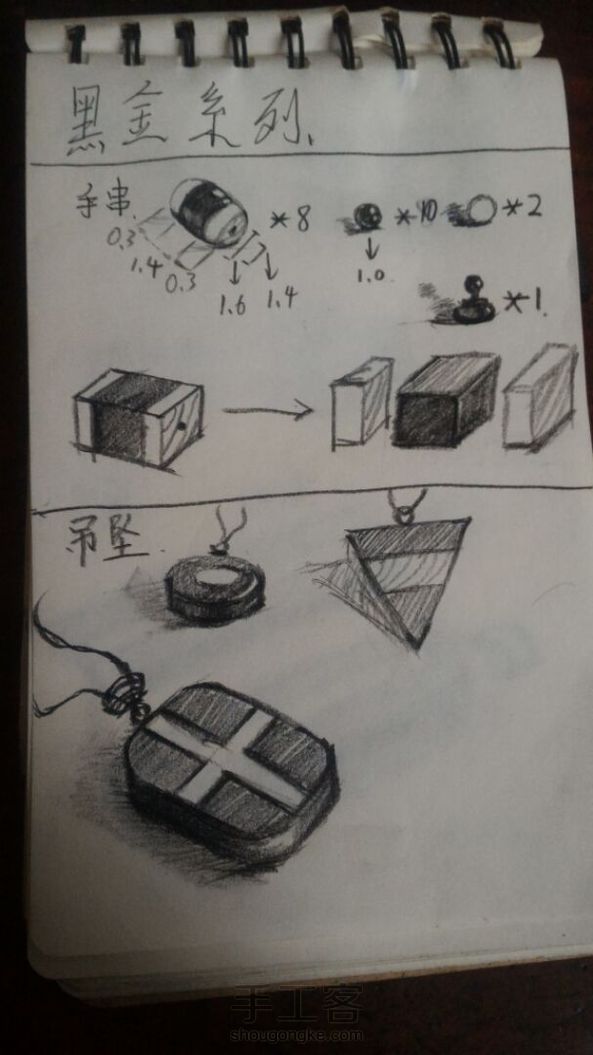 黑金系列.
手串.
*8
*10
*2
0.3
1.4
0.3
1.6
1.4
1.0
*1
吊坠.
手工客
shougongke.com